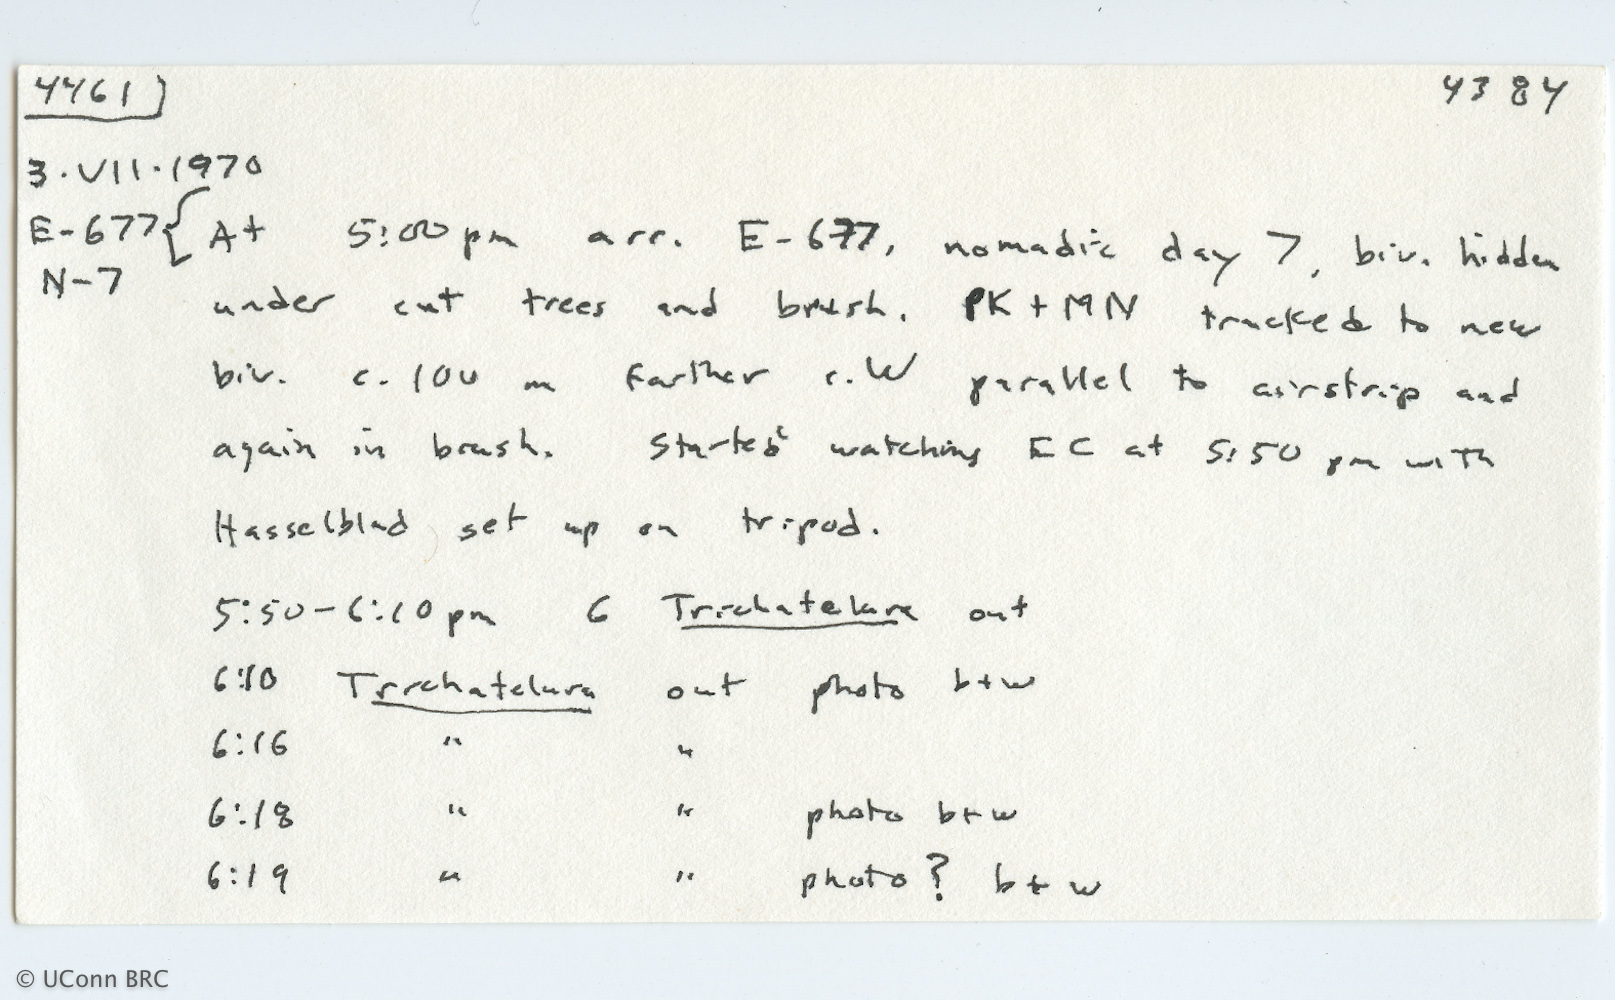 4461] 4384
3.VII.1970
E-677 { At 5:00 pm arr. E-677, nomadic day 7, biv. hidden
N-7
under cut trees and brush. PK + MN tracked to new
biv. c. 100 m farther c. W parallel to airstrip and
again in brush. Started watching EC at 5:50 pm with
Hasselblad set up on tripod.
5:50-6:10 pm 6 Trichatelura out
6:10 Trichatelura out photo b+w
6:16 " "
6:18 " " photo b+w
6:19 " " photo? b+w
© UConn BRC